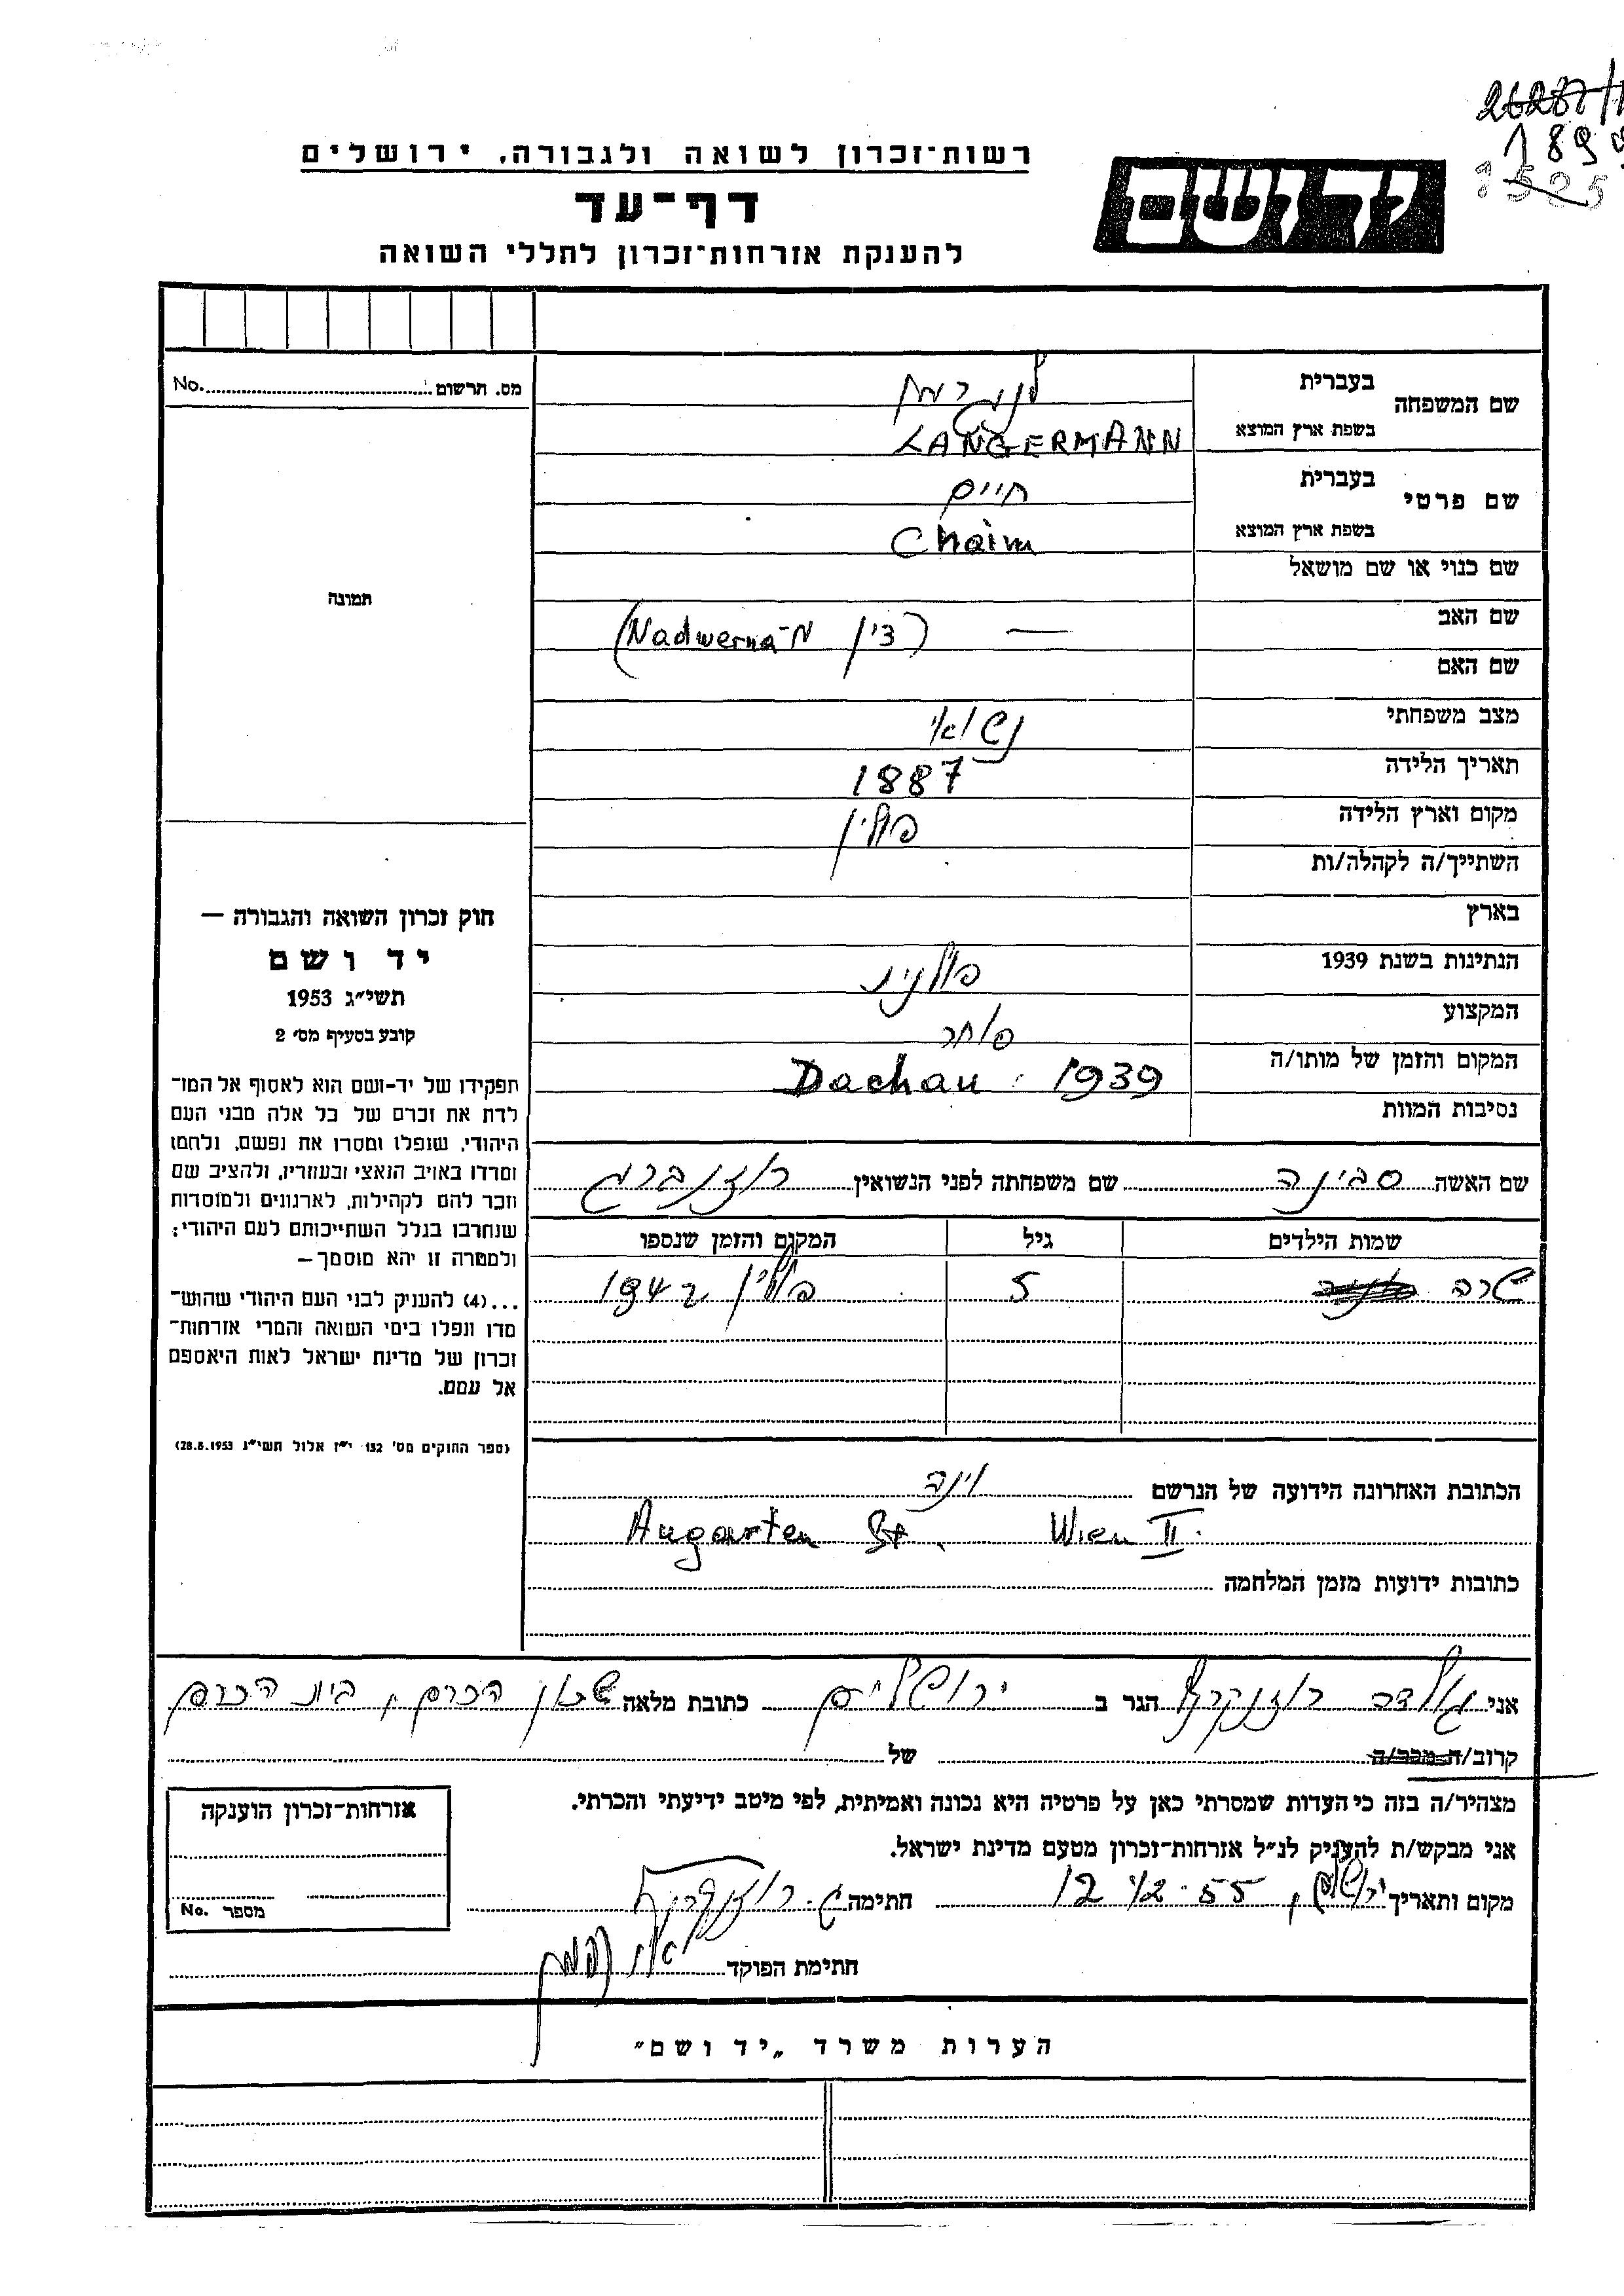 רשות־זכרון לשואה ולגבורה, ירושלים
דף־עד
להענקת אזרחות־זכרון לחללי השואה
יד ושם
1525
מס. תרשום No.
תמונה
שם המשפחה
בעברית לנגרמן
בשפת ארץ המוצא LANGERMANN
שם פרטי
בעברית חיים
בשפת ארץ המוצא Chaim
שם כנוי או שם מושאל
שם האב — (דין מ-Nadwerna)
שם האם
מצב משפחתי נשואי
תאריך הלידה 1887
מקום וארץ הלידה פולין
השתייך/ה לקהלה/ות
בארץ
הנתינות בשנת 1939 פולנית
המקצוע סוחר
המקום והזמן של מותו/ה Dachau 1939
נסיבות המוות
חוק זכרון השואה והגבורה —
יד ושם
תשי״ג 1953
קובע בסעיף מס׳ 2
תפקידו של יד-ושם הוא לאסוף אל המו־
לדת את זכרם של כל אלה מבני העם
היהודי, שנפלו ומסרו את נפשם, נלחמו
ומרדו באויב הנאצי ובעוזריו, ולהציב שם
וזכר להם לקהילות, לארגונים ולמוסדות
שנחרבו בגלל השתייכותם לעם היהודי;
ולמטרה זו יהא מוסמך —
...(4) להעניק לבני העם היהודי שהוש־
מדו ונפלו בימי השואה והמרי אזרחות־
זכרון של מדינת ישראל לאות היאספם
אל עמם.
(ספר החוקים מס׳ 132 י״ז אלול תשי״ג 28.8.1953)
שם האשה סבינה שם משפחתה לפני הנשואין רוזנברג
שמות הילדים גיל המקום והזמן שנספו
שרה 5 פולין ב 1942
הכתובת האחרונה הידועה של הנרשם וינה
Wien II. Augarten St.
כתובות ידועות מזמן המלחמה
אני גולדה רוזנקרנץ הגר ב ירושלים כתובת מלאה שכון הכרם, בית הכרם
קרוב/ה מכר/ה של
מצהיר/ה בזה כי העדות שמסרתי כאן על פרטיה היא נכונה ואמיתית, לפי מיטב ידיעתי והכרתי.
אני מבקש/ת להעניק לנ״ל אזרחות־זכרון מטעם מדינת ישראל.
מקום ותאריך ירושלים, 12 12.55 חתימה ג. רוזנקרנץ
חתימת הפוקד
אזרחות־זכרון הוענקה
מספר No.
הערות משרד „יד ושם״